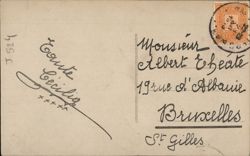 J 524
Tante
Cecilia
xxxxx
Monsieur
Albert Theate
19 rue d'Albanie
Bruxelles
St Gilles